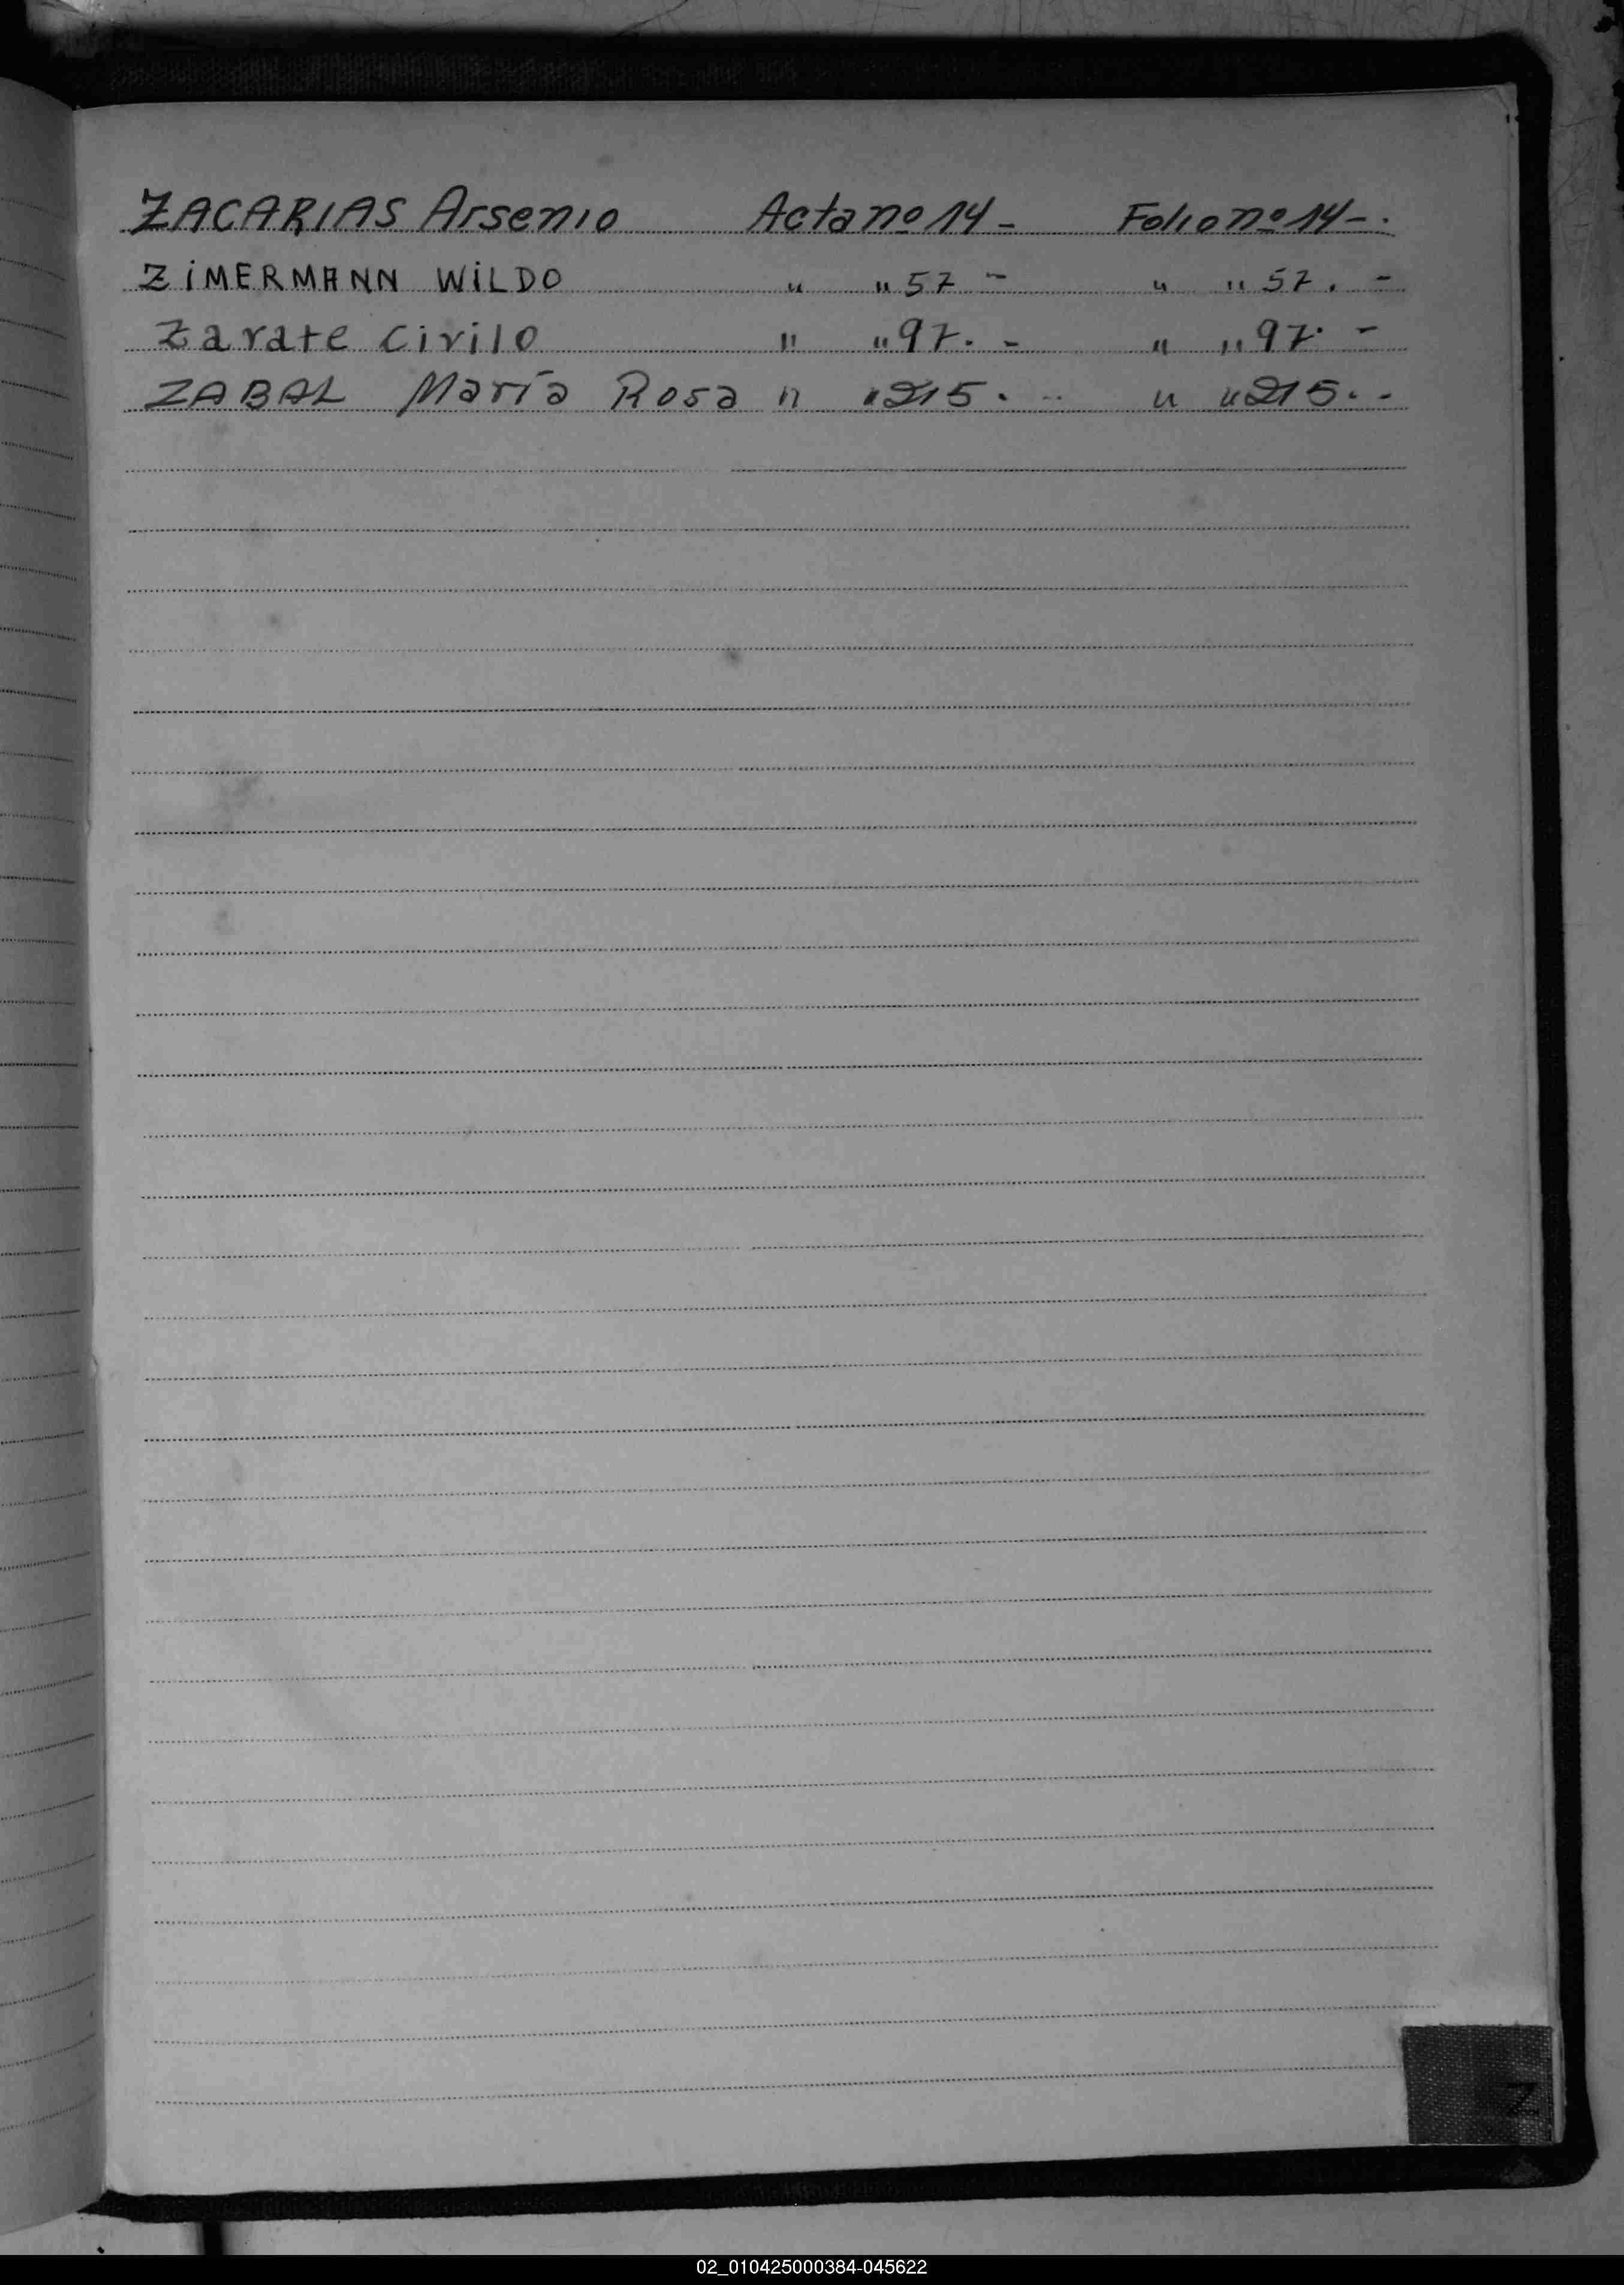 ZACARIAS Arsenio Acta nº 14 - Folio nº 14 - .
ZiMERMANN WiLDO " " 57 - " " 57. -
Zarate Cirilo " " 97. - " " 97. -
ZABAL María Rosa " " 215. - " " 215. -
Z
02_010425000384-045622